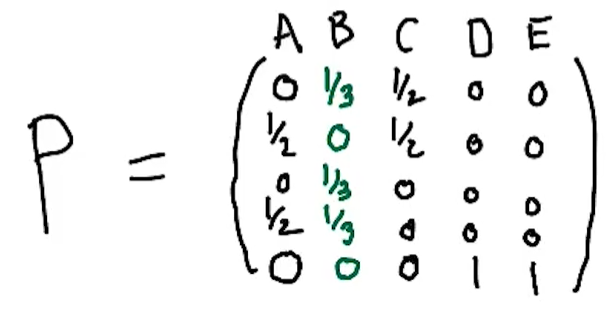 A B C D E
P = ( 0 1/3 1/2 0 0
1/2 0 1/2 0 0
0 1/3 0 0 0
1/2 1/3 0 0 0
0 0 0 1 1 )